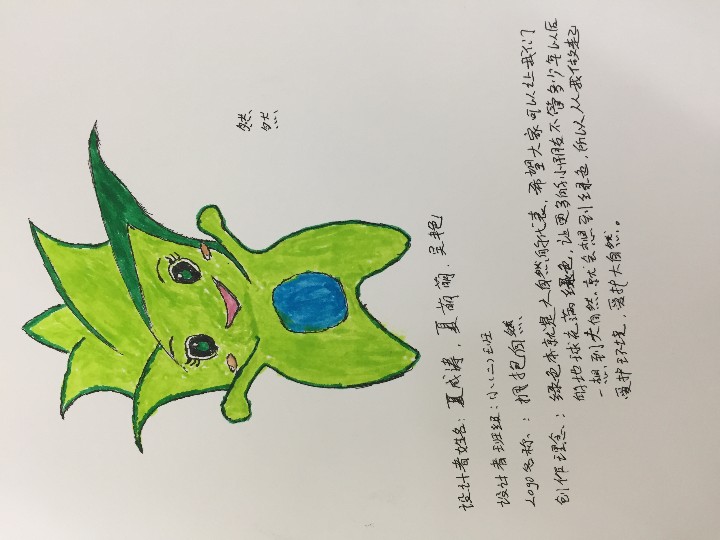 然然
设计者姓名：夏成涛，夏萌萌，吴艳
设计者班组：小(二)班
Logo名称：拥抱自然
创作理念：绿色本就是大自然的代表、希望大家可以让我们
的地球充满绿色，让更多的小朋友不管多少年以后
一想到大自然就会想到绿色，所以从我做起
爱护环境，爱护大自然。